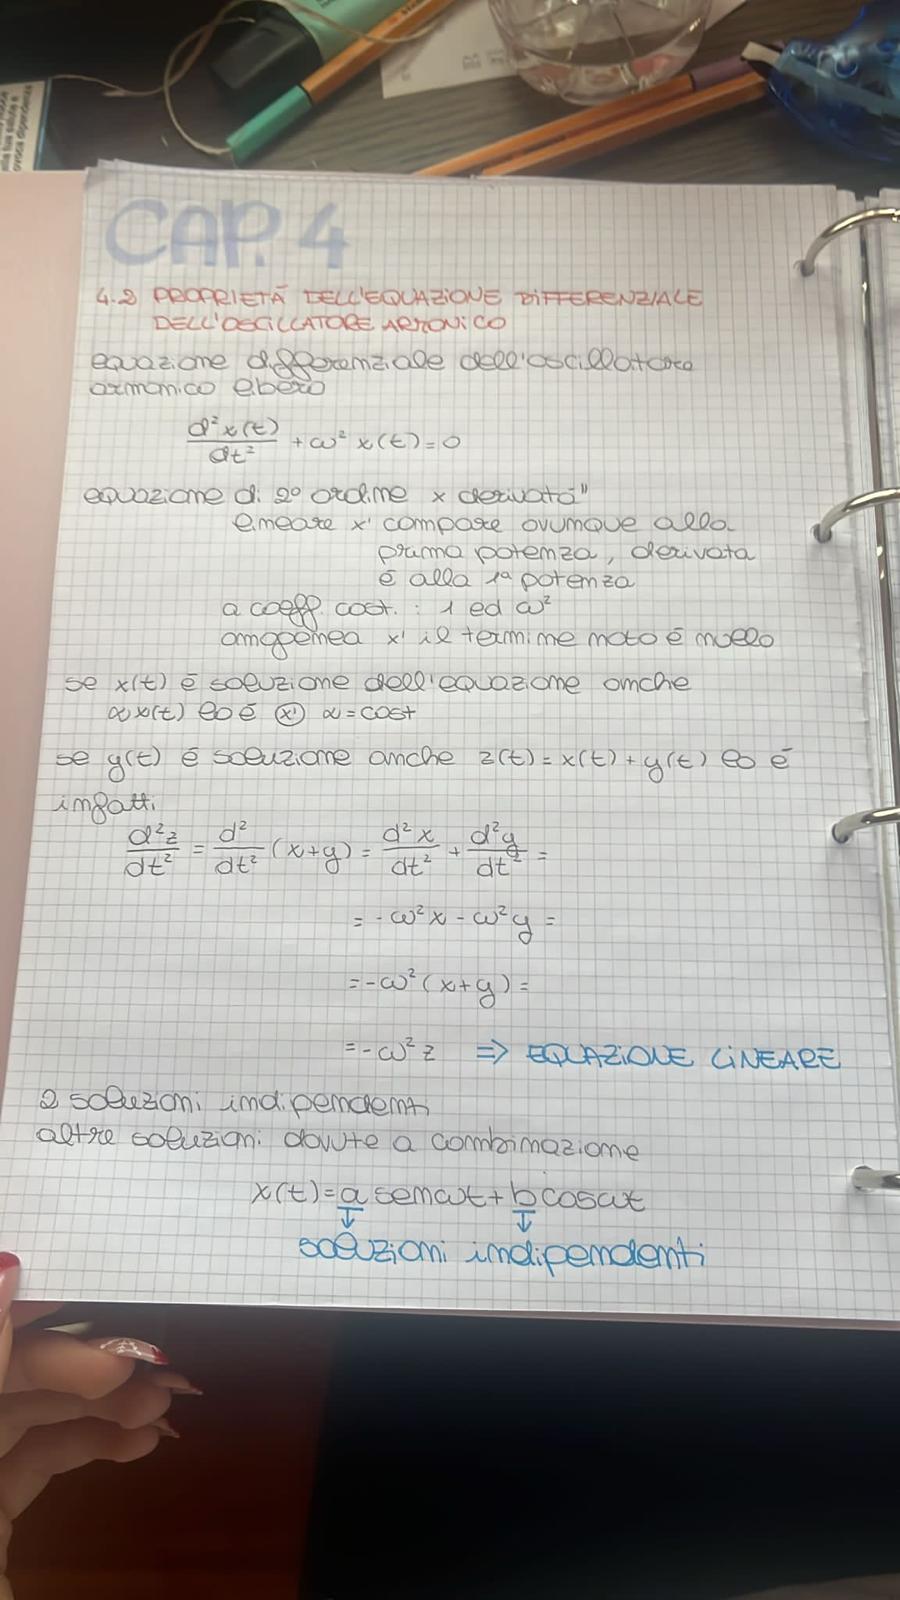 la tua salute e
provoca dipendenza
CAP. 4
4.2 PROPRIETÀ DELL'EQUAZIONE DIFFERENZIALE
DELL'OSCILLATORE ARMONICO
equazione differenziale dell'oscillatore
armonico libero
d²x(t)/dt² + ω² x(t) = 0
equazione di 2º ordine x derivata"
lineare x' compare ovunque alla
prima potenza, derivata
è alla 1ª potenza
a coeff. cost. : 1 ed ω²
omogenea x' il termine noto è nullo
se x(t) è soluzione dell'equazione anche
αx(t) lo è (x') α = cost
se y(t) è soluzione anche z(t) = x(t) + y(t) lo è
infatti
d²z/dt² = d²/dt² (x+y) = d²x/dt² + d²y/dt² =
= -ω²x - ω²y =
= -ω² (x+y) =
= -ω² z ⇒ EQUAZIONE LINEARE
2 soluzioni indipendenti
altre soluzioni dovute a combinazione
x(t) = a senωt + b cosωt
↓ ↓
soluzioni indipendenti